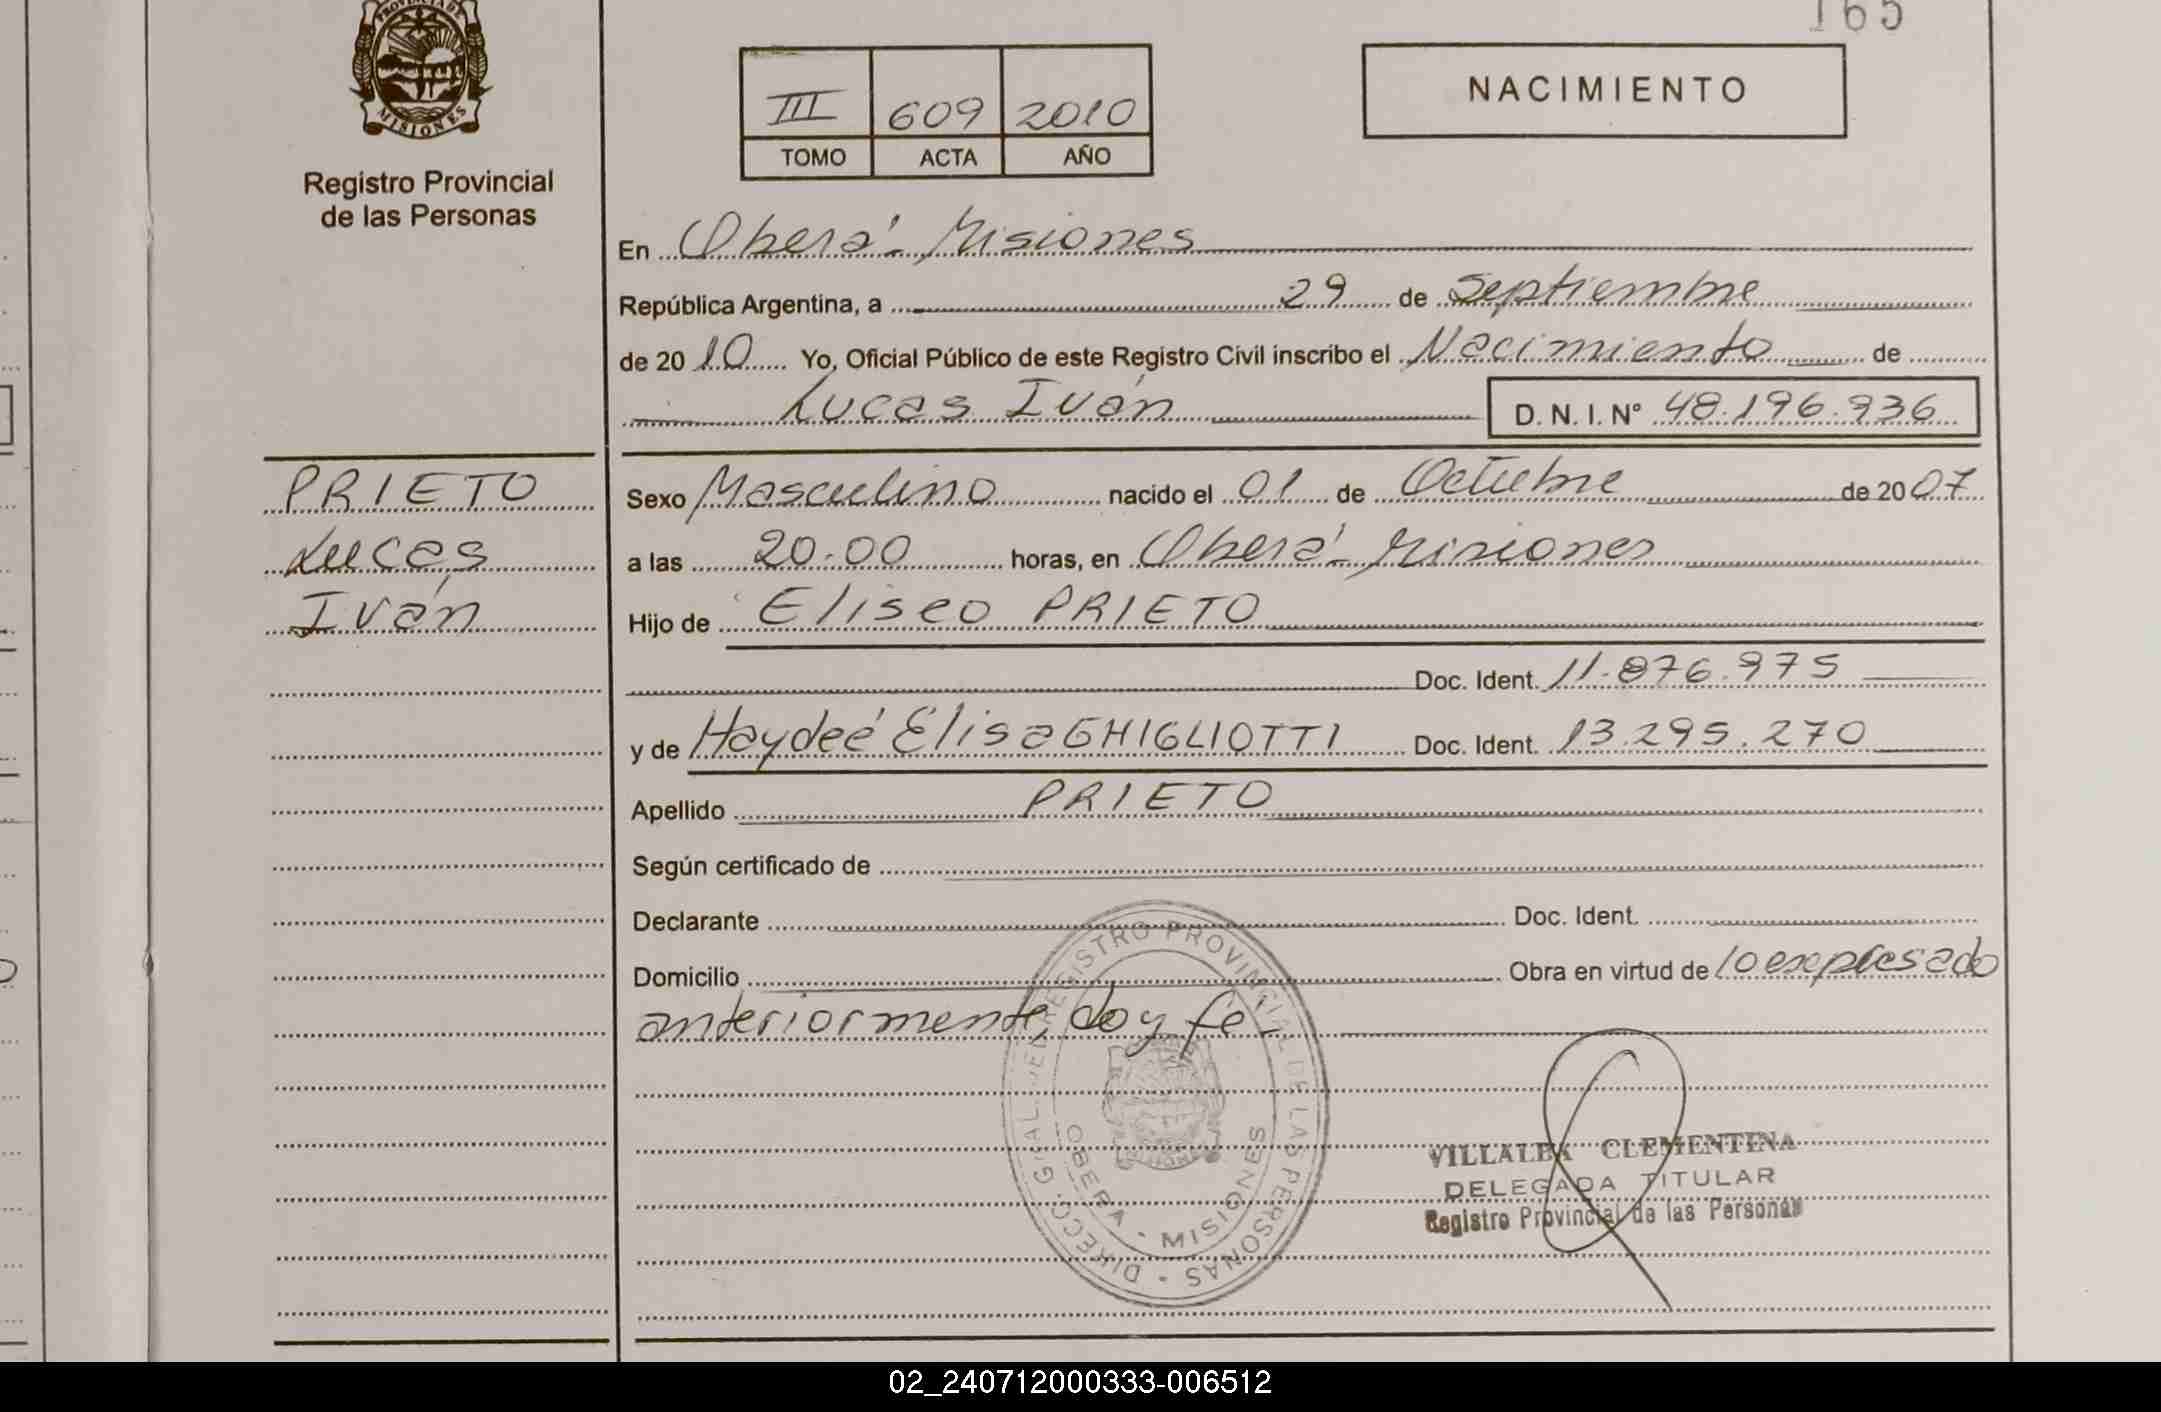 165
PROVINCIA DE
MISIONES
Registro Provincial
de las Personas
III 609 2010
TOMO ACTA AÑO
NACIMIENTO
En Oberá - Misiones
República Argentina, a 29 de Septiembre
de 20 10 Yo, Oficial Público de este Registro Civil inscribo el Nacimiento de
Lucas Iván D. N. I. Nº 48.196.936
PRIETO
Lucas
Iván
Sexo Masculino nacido el 01 de Octubre de 20 07
a las 20.00 horas, en Oberá - Misiones
Hijo de Eliseo PRIETO
Doc. Ident. 11.876.975
y de Haydeé Elisa GHIGLIOTTI Doc. Ident. 13.295.270
Apellido PRIETO
Según certificado de
Declarante Doc. Ident.
Domicilio Obra en virtud de lo expresado
anteriormente, doy fé.-
REGISTRO PROVINCIAL DE LAS PERSONAS
OBERA - MISIONES
VILLALBA CLEMENTINA
DELEGADA TITULAR
Registro Provincial de las Personas
02_240712000333-006512